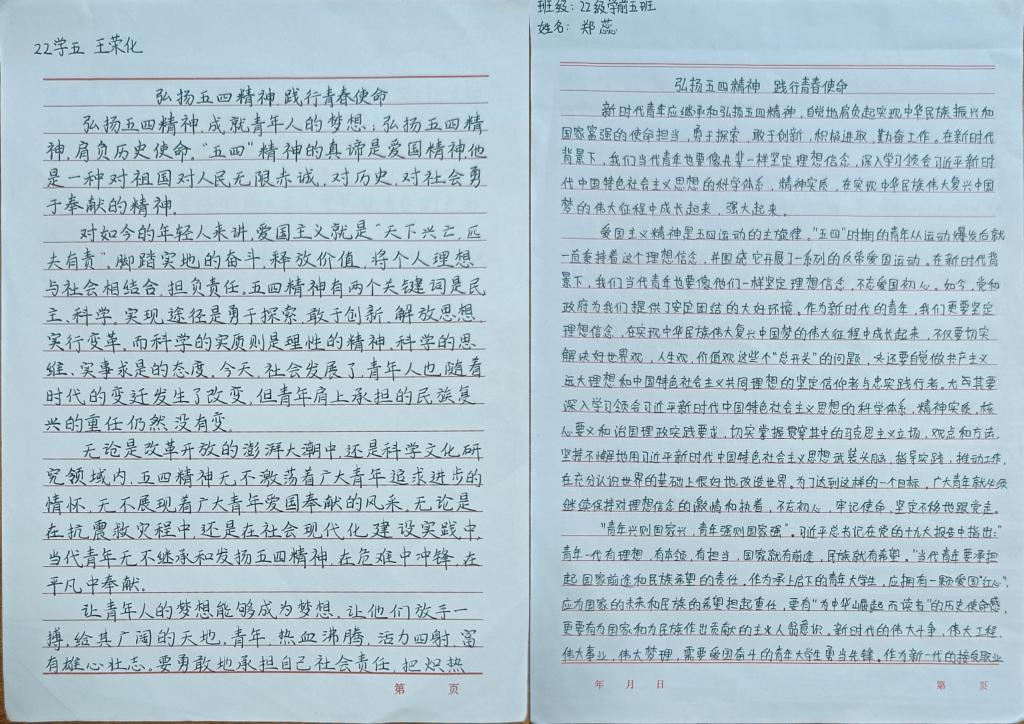 22学五 王荣化
弘扬五四精神 践行青春使命
弘扬五四精神,成就青年人的梦想;弘扬五四精
神,肩负历史使命。“五四”精神的真谛是爱国精神,他
是一种对祖国对人民无限赤诚,对历史,对社会勇
于奉献的精神。
对如今的年轻人来讲,爱国主义就是“天下兴亡,匹
夫有责”,脚踏实地的奋斗,释放价值,将个人理想
与社会相结合,担负责任。五四精神有两个关键词是民
主、科学,实现途径是勇于探索,敢于创新,解放思想,
实行变革,而科学的实质则是理性的精神,科学的思
维、实事求是的态度。今天,社会发展了,青年人也随着
时代的变迁发生了改变,但青年肩上承担的民族复
兴的重任仍然没有变。
无论是改革开放的澎湃大潮中,还是科学文化研
究领域内,五四精神无不激荡着广大青年追求进步的
情怀,无不展现着广大青年爱国奉献的风采,无论是
在抗震救灾程中,还是在社会现代化建设实践中,
当代青年无不继承和发扬五四精神,在危难中冲锋,在
平凡中奉献。
让青年人的梦想能够成为梦想,让他们放手一
搏,给其广阔的天地,青年,热血沸腾,活力四射,富
有雄心壮志。要勇敢地承担自己社会责任,把炽热
第 页
班级:22级学前五班
姓名:郑蕊
弘扬五四精神 践行青春使命
新时代青年应继承和弘扬五四精神,自觉地肩负起实现中华民族振兴和
国家富强的使命担当,勇于探索,敢于创新,积极进取,勤奋工作。在新时代
背景下,我们当代青年也要像先辈一样坚定理想信念,深入学习领会习近平新时
代中国特色社会主义思想的科学体系,精神实质,在实现中华民族伟大复兴中国
梦的伟大征程中成长起来,强大起来。
爱国主义精神是五四运动的主旋律。“五四”时期的青年从运动爆发后就
一直秉持着这个理想信念,并围绕它开展了一系列的反帝爱国运动。在新时代背
景下,我们当代青年也要像他们一样坚定理想信念,不忘爱国初心。如今,党和
政府为我们提供了安定团结的大好环境,作为新时代的青年,我们更要坚定
理想信念,在实现中华民族伟大复兴中国梦的伟大征程中成长起来,不仅要切实
解决好世界观,人生观,价值观这些个“总开关”的问题,还要自觉做共产主义
远大理想和中国特色社会主义共同理想的坚定信仰者与忠实践行者。尤其要
深入学习领会习近平新时代中国特色社会主义思想的科学体系,精神实质,核
心要义和治国理政实践要求,切实掌握贯穿其中的马克思主义立场,观点和方法,
坚持不懈地用习近平新时代中国特色社会主义思想武装头脑,指导实践,推动工作,
在充分认识世界的基础上很好地改造世界。为了达到这样的一个目标,广大青年就必须
继续保持对理想信念的激情和执着,不忘初心,牢记使命,坚定不移地跟党走。
“青年兴则国家兴,青年强则国家强”。习近平总书记在党的十九大报告中指出:“
青年一代有理想,有本领,有担当,国家就有前途,民族就有希望。”当代青年要承担
起国家前途和民族希望的责任,作为承上启下的青年大学生,应拥有一颗爱国“红心”,
应为国家的未来和民族的希望担起重任,要有“为中华崛起而读者”的历史使命感,
更要有为国家和为民族作出贡献的主人翁意识。新时代的伟大斗争,伟大工程,
伟大事业,伟大梦理,需要爱国奋斗的青年大学生勇当先锋。作为新一代的接受职业
年 月 日
第 页